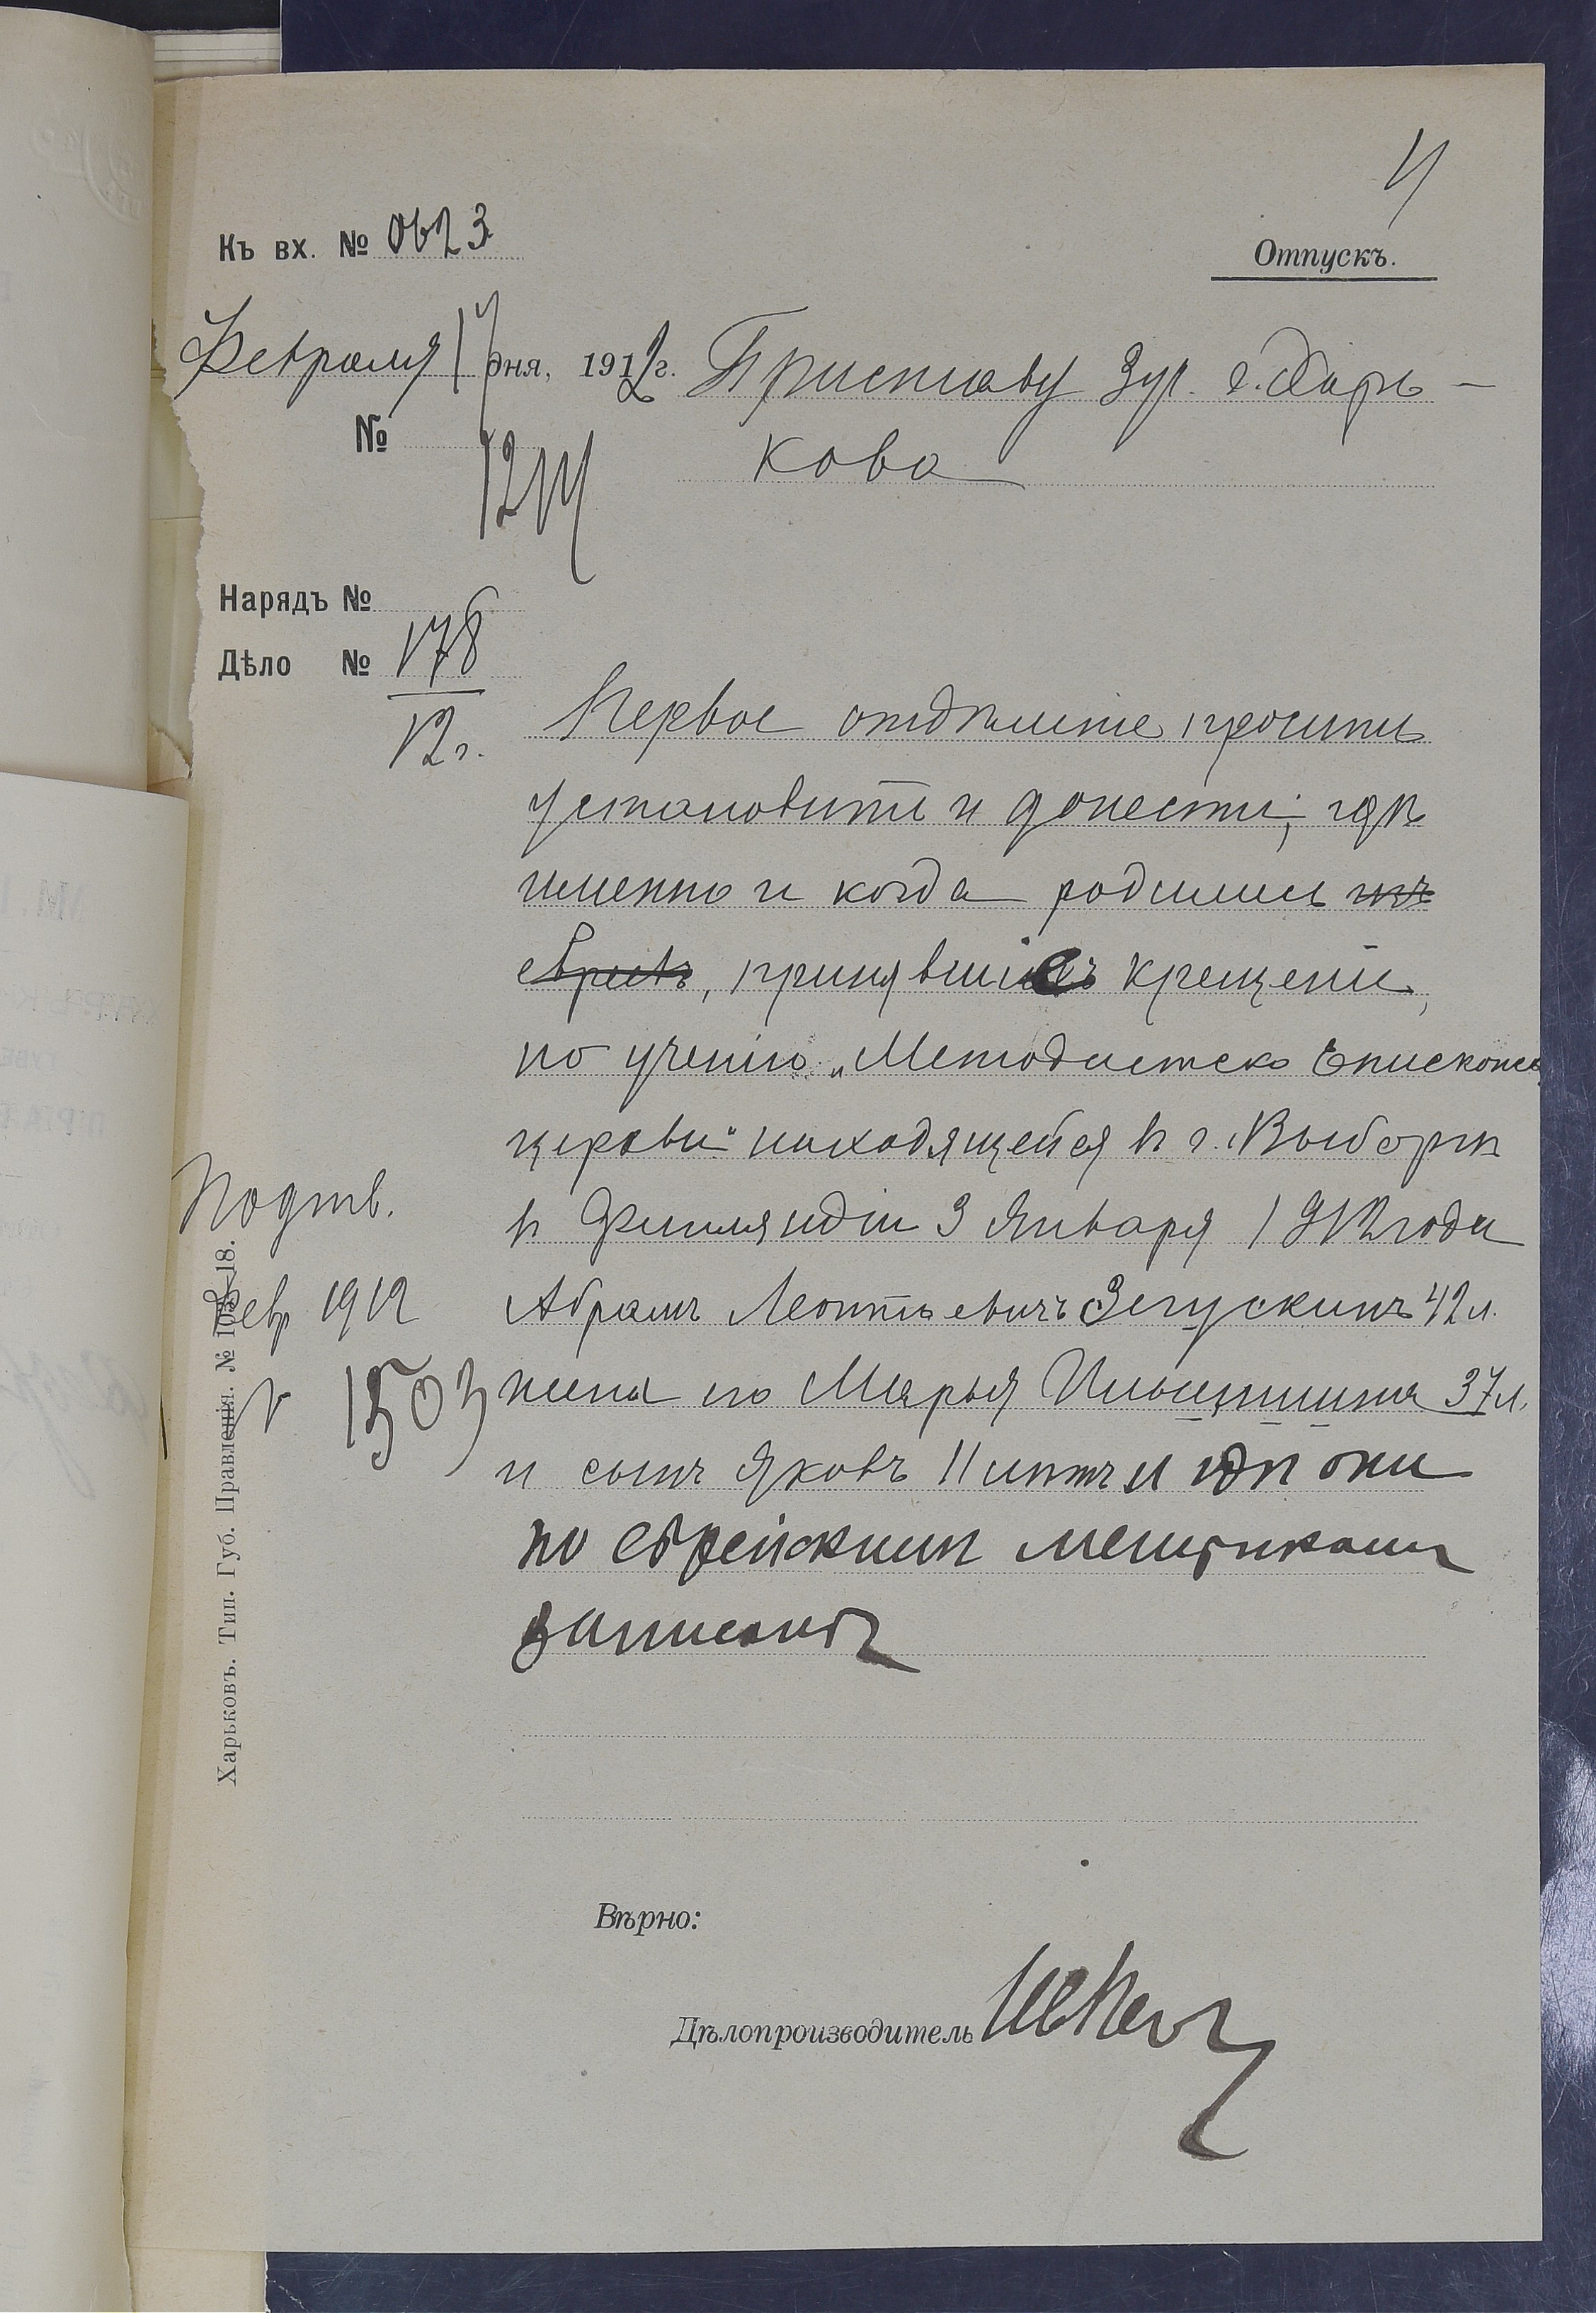 4
Къ вх. № 0623
Отпускъ.
Февраля 17 дня, 1912 г. Приставу 3 уч. г. Харь-
№ 1214 кова
Нарядъ №
Дѣло № 178
12 г.
Первое отдѣленіе проситъ
установить и донести, гдѣ
именно и когда родились изъ
евреевъ, принявшіе крещеніе,
по ученію „Методистско Епископск.
церкви" находящейся въ г. Выборгѣ
въ Финляндіи 3 Января 1912 года
Абрамъ Леонтьевичъ Зегускинъ 42 л.
жена его Марья 37 л.
и сынъ Яковъ 11 лѣтъ и гдѣ они
по еврейскимъ метрикамъ
записаны
Подтв.
Февр 1912
№ 1503
Харьковъ. Тип. Губ. Правленія. № 103-18.
Вѣрно:
Дѣлопроизводитель